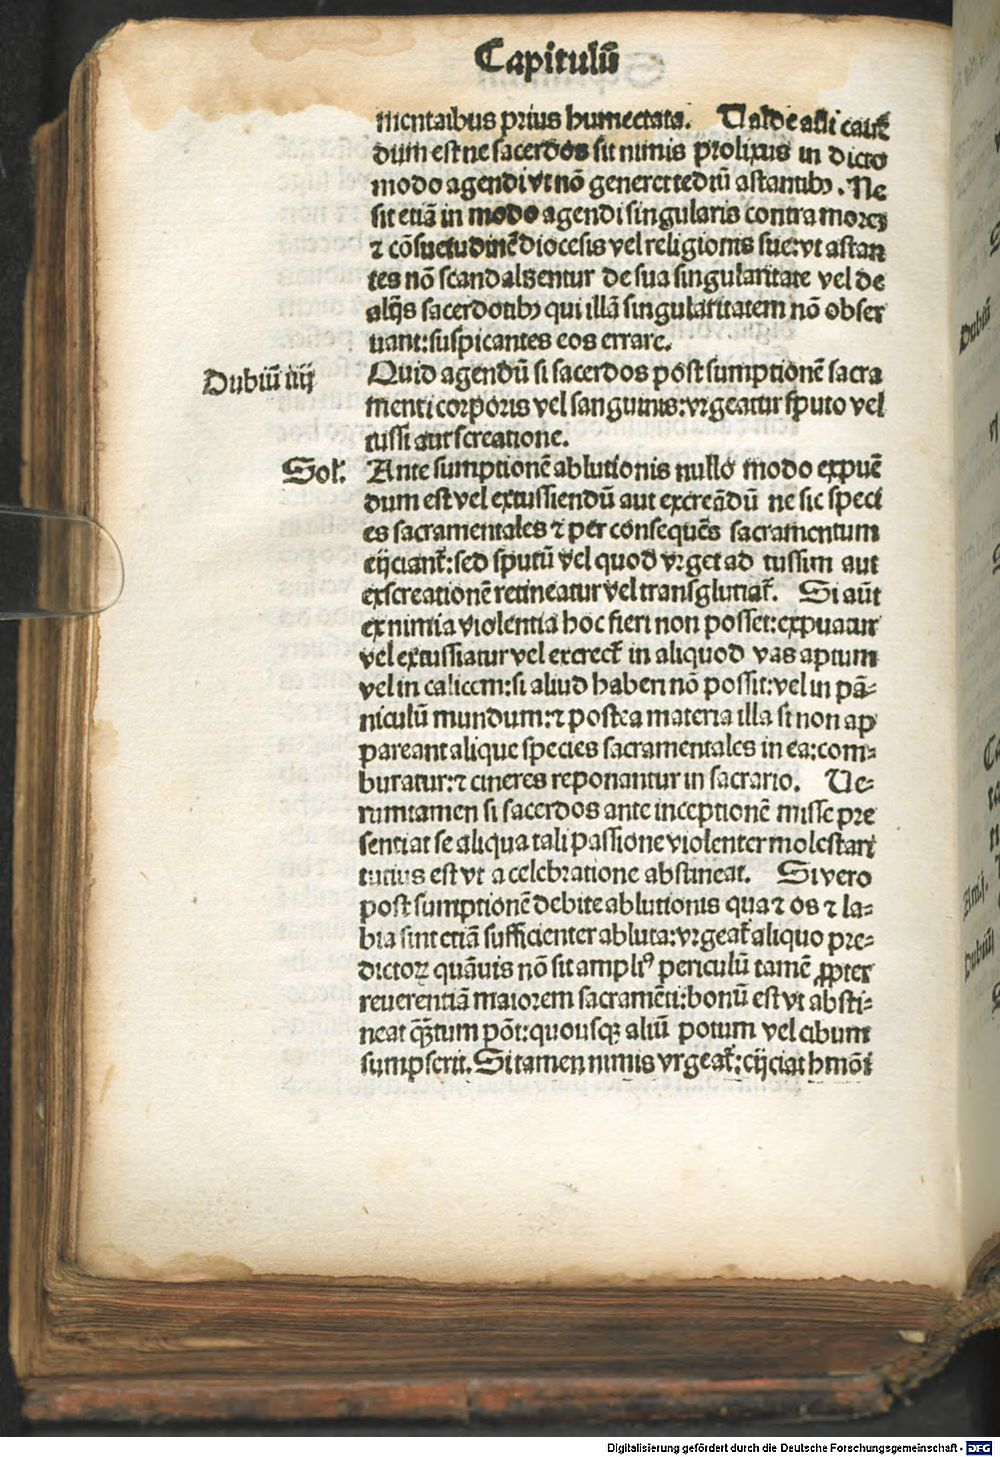 Capitulū
mentalibus prius humectata. Valde aūt caueƞ
dum est ne sacerdos sit nimis prolixus in dicto
modo agendi vt nō generet tediū astantibꝫ. Ne
sit etiā in modo agendi singularis contra mores
ꞇ cōsuetudinē diocesis vel religionis sue: vt astan
tes nō scandalizentur de sua singularitate vel de
alijs sacerdotibꝫ qui illā singularitatem nō obser
uant: suspicantes eos errare.
Dubiū iiij
Quid agendū si sacerdos post sumptionē sacra
menti corporis vel sanguinis: vrgeatur sputo vel
tussi aut screatione.
Sol'.
Ante sumptionē ablutionis nullo modo expuē
dum est vel extussiendū aut excreādū ne sic speci
es sacramentales ꞇ per consequēs sacramentum
eijciant᷑: sed sputū vel quod vrget ad tussim aut
exscreationē retineatur vel transglutiat᷑. Si aūt
ex nimia violentia hoc fieri non posset: expuatur
vel extussiatur vel excreet᷑ in aliquod vas aptum
vel in calicem: si aliud haberi nō possit: vel in pā-
niculū mundum: ꞇ postea materia illa si non ap
pareant alique species sacramentales in ea: com-
buratur: ꞇ cineres reponantur in sacrario. Ve-
rumtamen si sacerdos ante inceptionē misse pre
sentiat se aliqua tali passione violenter molestari
tutius est vt a celebratione abstineat. Si vero
post sumptionē debite ablutionis qua ꞇ os ꞇ la-
bia sint etiā sufficienter abluta: vrgeat᷑ aliquo pre-
dictoꝝ quāuis nō sit ampliꝰ periculū tamē ꝓpter
reuerentiā maiorem sacramēti: bonū est vt absti-
neat ꝙ̄tum pōt: quousqꝫ aliū potum vel cibum
sumpserit. Si tamen nimis vrgeat᷑: eijciat hmōi